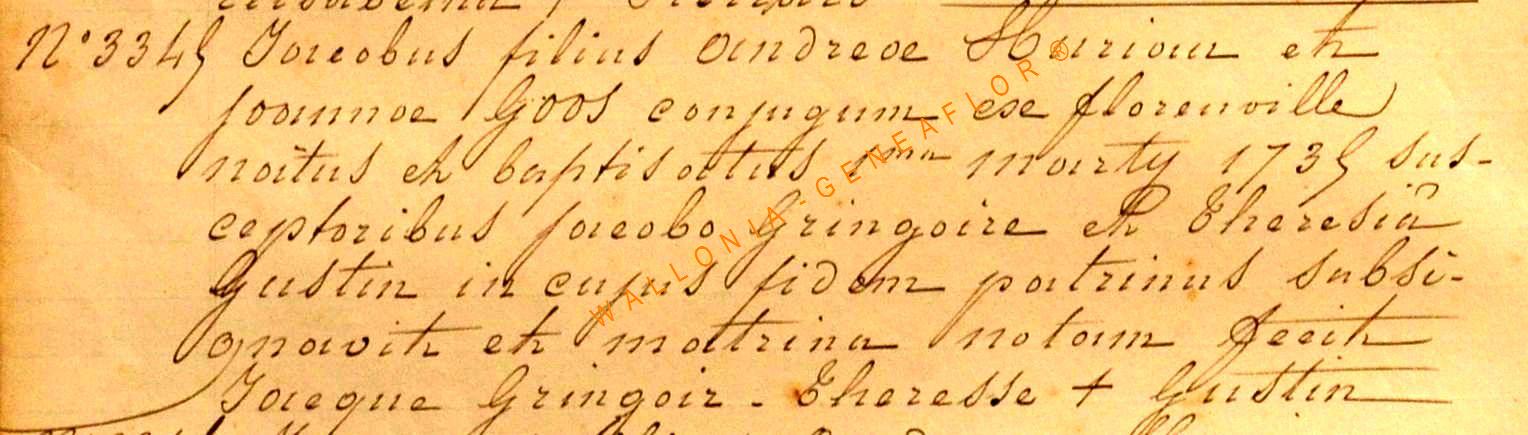 N° 3345 Jacobus filius Andreae Huriaux et
joannae Goos conjugum ex florenville
natus et baptisatus 1ma marty 1735 sus-
ceptoribus jacobo Gringoire et Theresiâ
Gustin in cujus fidem patrinus subsi-
gnavit et matrina notam fecit
Jacque Gringoir - Theresse + Gustin
WALLONIA-GENEAFLOR®